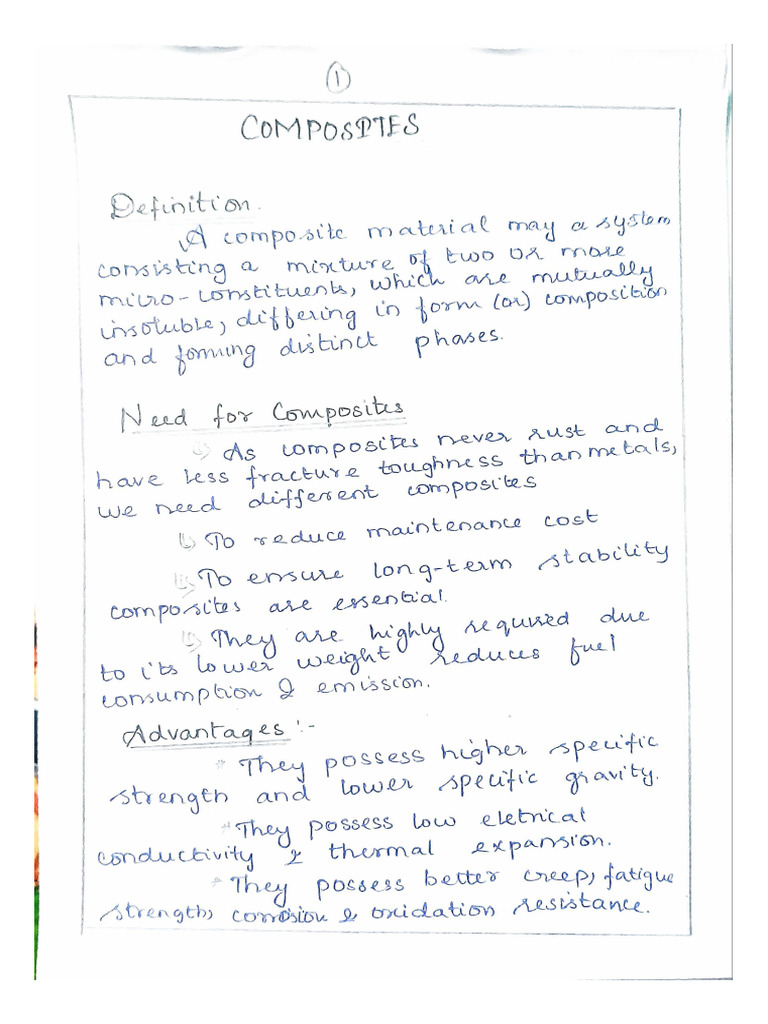 1
COMPOSITES
Definition.
A composite material may a system
consisting a mixture of two or more
micro-constituents, which are mutually
insoluble, differing in form (or) composition
and forming distinct phases.
Need for Composites
As composites never rust and
have less fracture toughness than metals,
we need different composites
To reduce maintenance cost
To ensure long-term stability
composites are essential.
They are highly required due
to its lower weight reduces fuel
consumption & emission.
Advantages :-
* They possess higher specific
strength and lower specific gravity.
* They possess low eletrical
conductivity & thermal expansion.
* They possess better creep, fatigue
strength, corrosion & oxidation resistance.